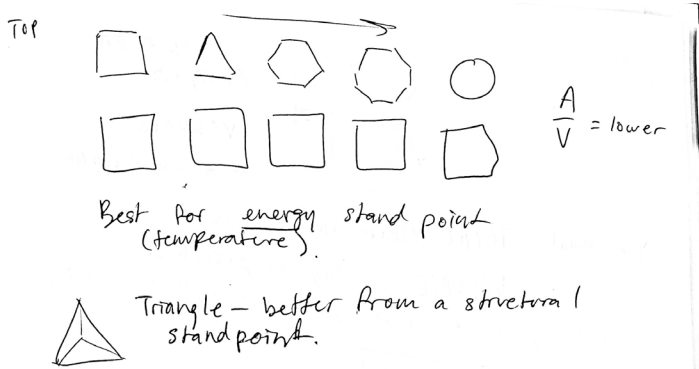 TOP
A
V = lower
Best for energy stand point
(temperature).
Triangle – better from a structural
standpoint.